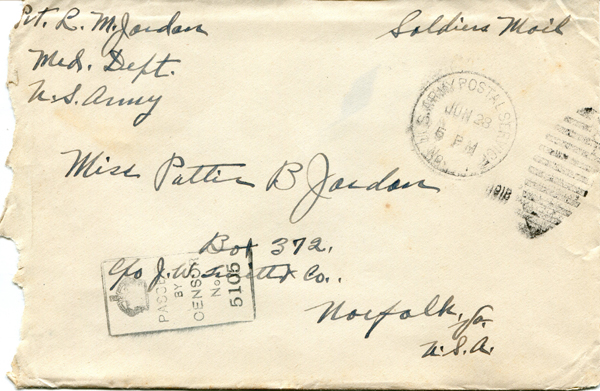 Pvt. R. M. Jordan
Med. Dept.
U.S. Army
Soldiers Mail
U.S. ARMY POSTAL SERVICE
JUN 28
6 PM
1918
Miss Pattie B Jordan
Box 372,
c/o J. W. & Co.,
Norfolk, Va.
U.S.A.
PASSED
BY
CENSOR
No.
5105